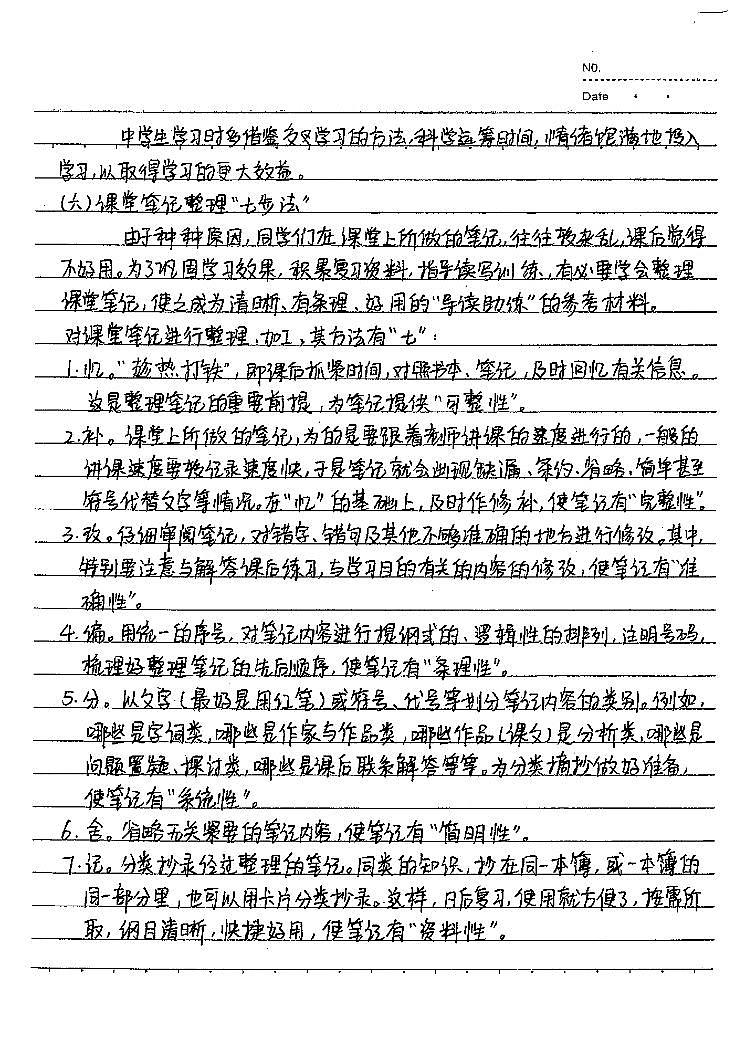 NO.
Date
中学生学习时多借鉴高效学习的方法,科学运筹时间,情绪饱满地投入
学习,以取得学习的更大效益。
(六)课堂笔记整理"七步法"
由于种种原因,同学们在课堂上所做的笔记,往往较杂乱,课后觉得
不好用。为了巩固学习效果,积累复习资料,指导读写训练,有必要学会整理
课堂笔记,使之成为清晰、有条理、好用的"导读助练"的参考材料。
对课堂笔记进行整理、加工,其方法有"七":
1.忆。"趁热打铁",即课后抓紧时间,对照书本、笔记,及时回忆有关信息。
这是整理笔记的重要前提,为笔记提供"可整性"。
2.补。课堂上所做的笔记,为的是要跟着老师讲课的速度进行的,一般的
讲课速度要较记录速度快,于是笔记就会出现缺漏、条约、省略、简单甚至
符号代替文字等情况。在"忆"的基础上,及时作修补,使笔记有"完整性"。
3.改。仔细审阅笔记,对错字、错句及其他不够准确的地方进行修改。其中,
特别要注意与解答课后练习,与学习目的有关的内容的修改,使笔记有"准
确性"。
4.编。用统一的序号,对笔记内容进行提纲式的、逻辑性的排列,注明号码,
梳理好整理笔记的先后顺序,使笔记有"条理性"。
5.分。以文字(最好是用红笔)或符号、代号等划分笔记内容的类别。例如,
哪些是字词类,哪些是作家与作品类,哪些作品(课文)是分析类,哪些是
问题置疑、探讨类,哪些是课后联系解答等等。为分类摘抄做好准备,
使笔记有"系统性"。
6.舍。省略无关紧要的笔记内容,使笔记有"简明性"。
7.记。分类抄录经过整理的笔记。同类的知识,抄在同一本簿,或一本簿的
同一部分里,也可以用卡片分类抄录。这样,日后复习,使用就方便了,按需所
取,纲目清晰,快捷好用,使笔记有"资料性"。